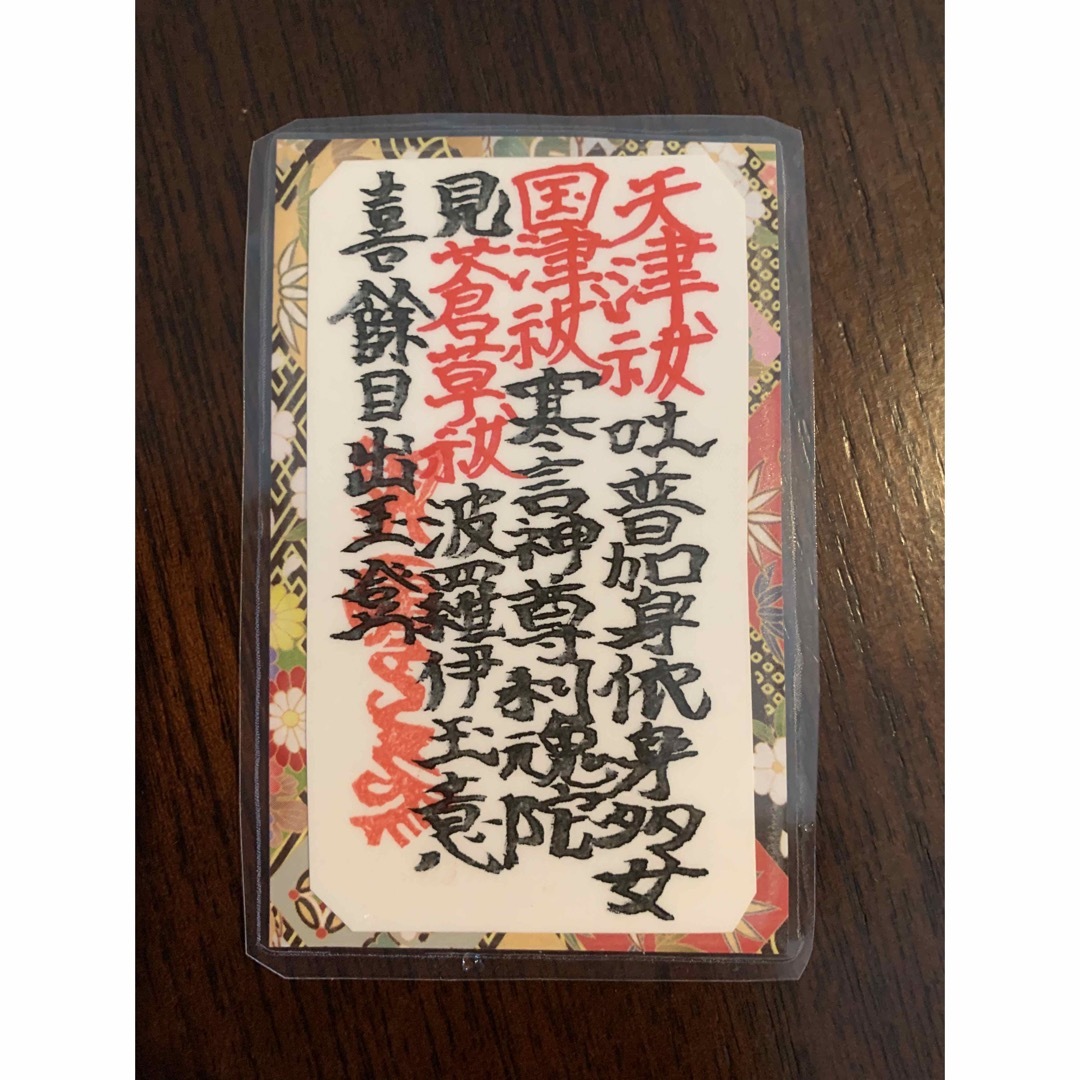 天津祓 吐普加身依身多女
国津祓 寒言神尊利魂陀
見 蒼草祓 波羅伊玉意
喜餘目出玉